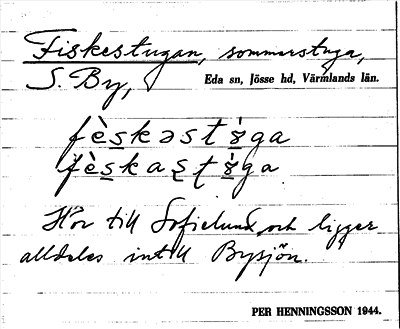 Fiskestugan, sommarstuga,
S. By, Eda sn, Jösse hd, Värmlands län.
fèskəstɤ̀ga
fèskastɤ̀ga
Hör till Sofielund och ligger
alldeles intill Bysjön.
PER HENNINGSSON 1944.